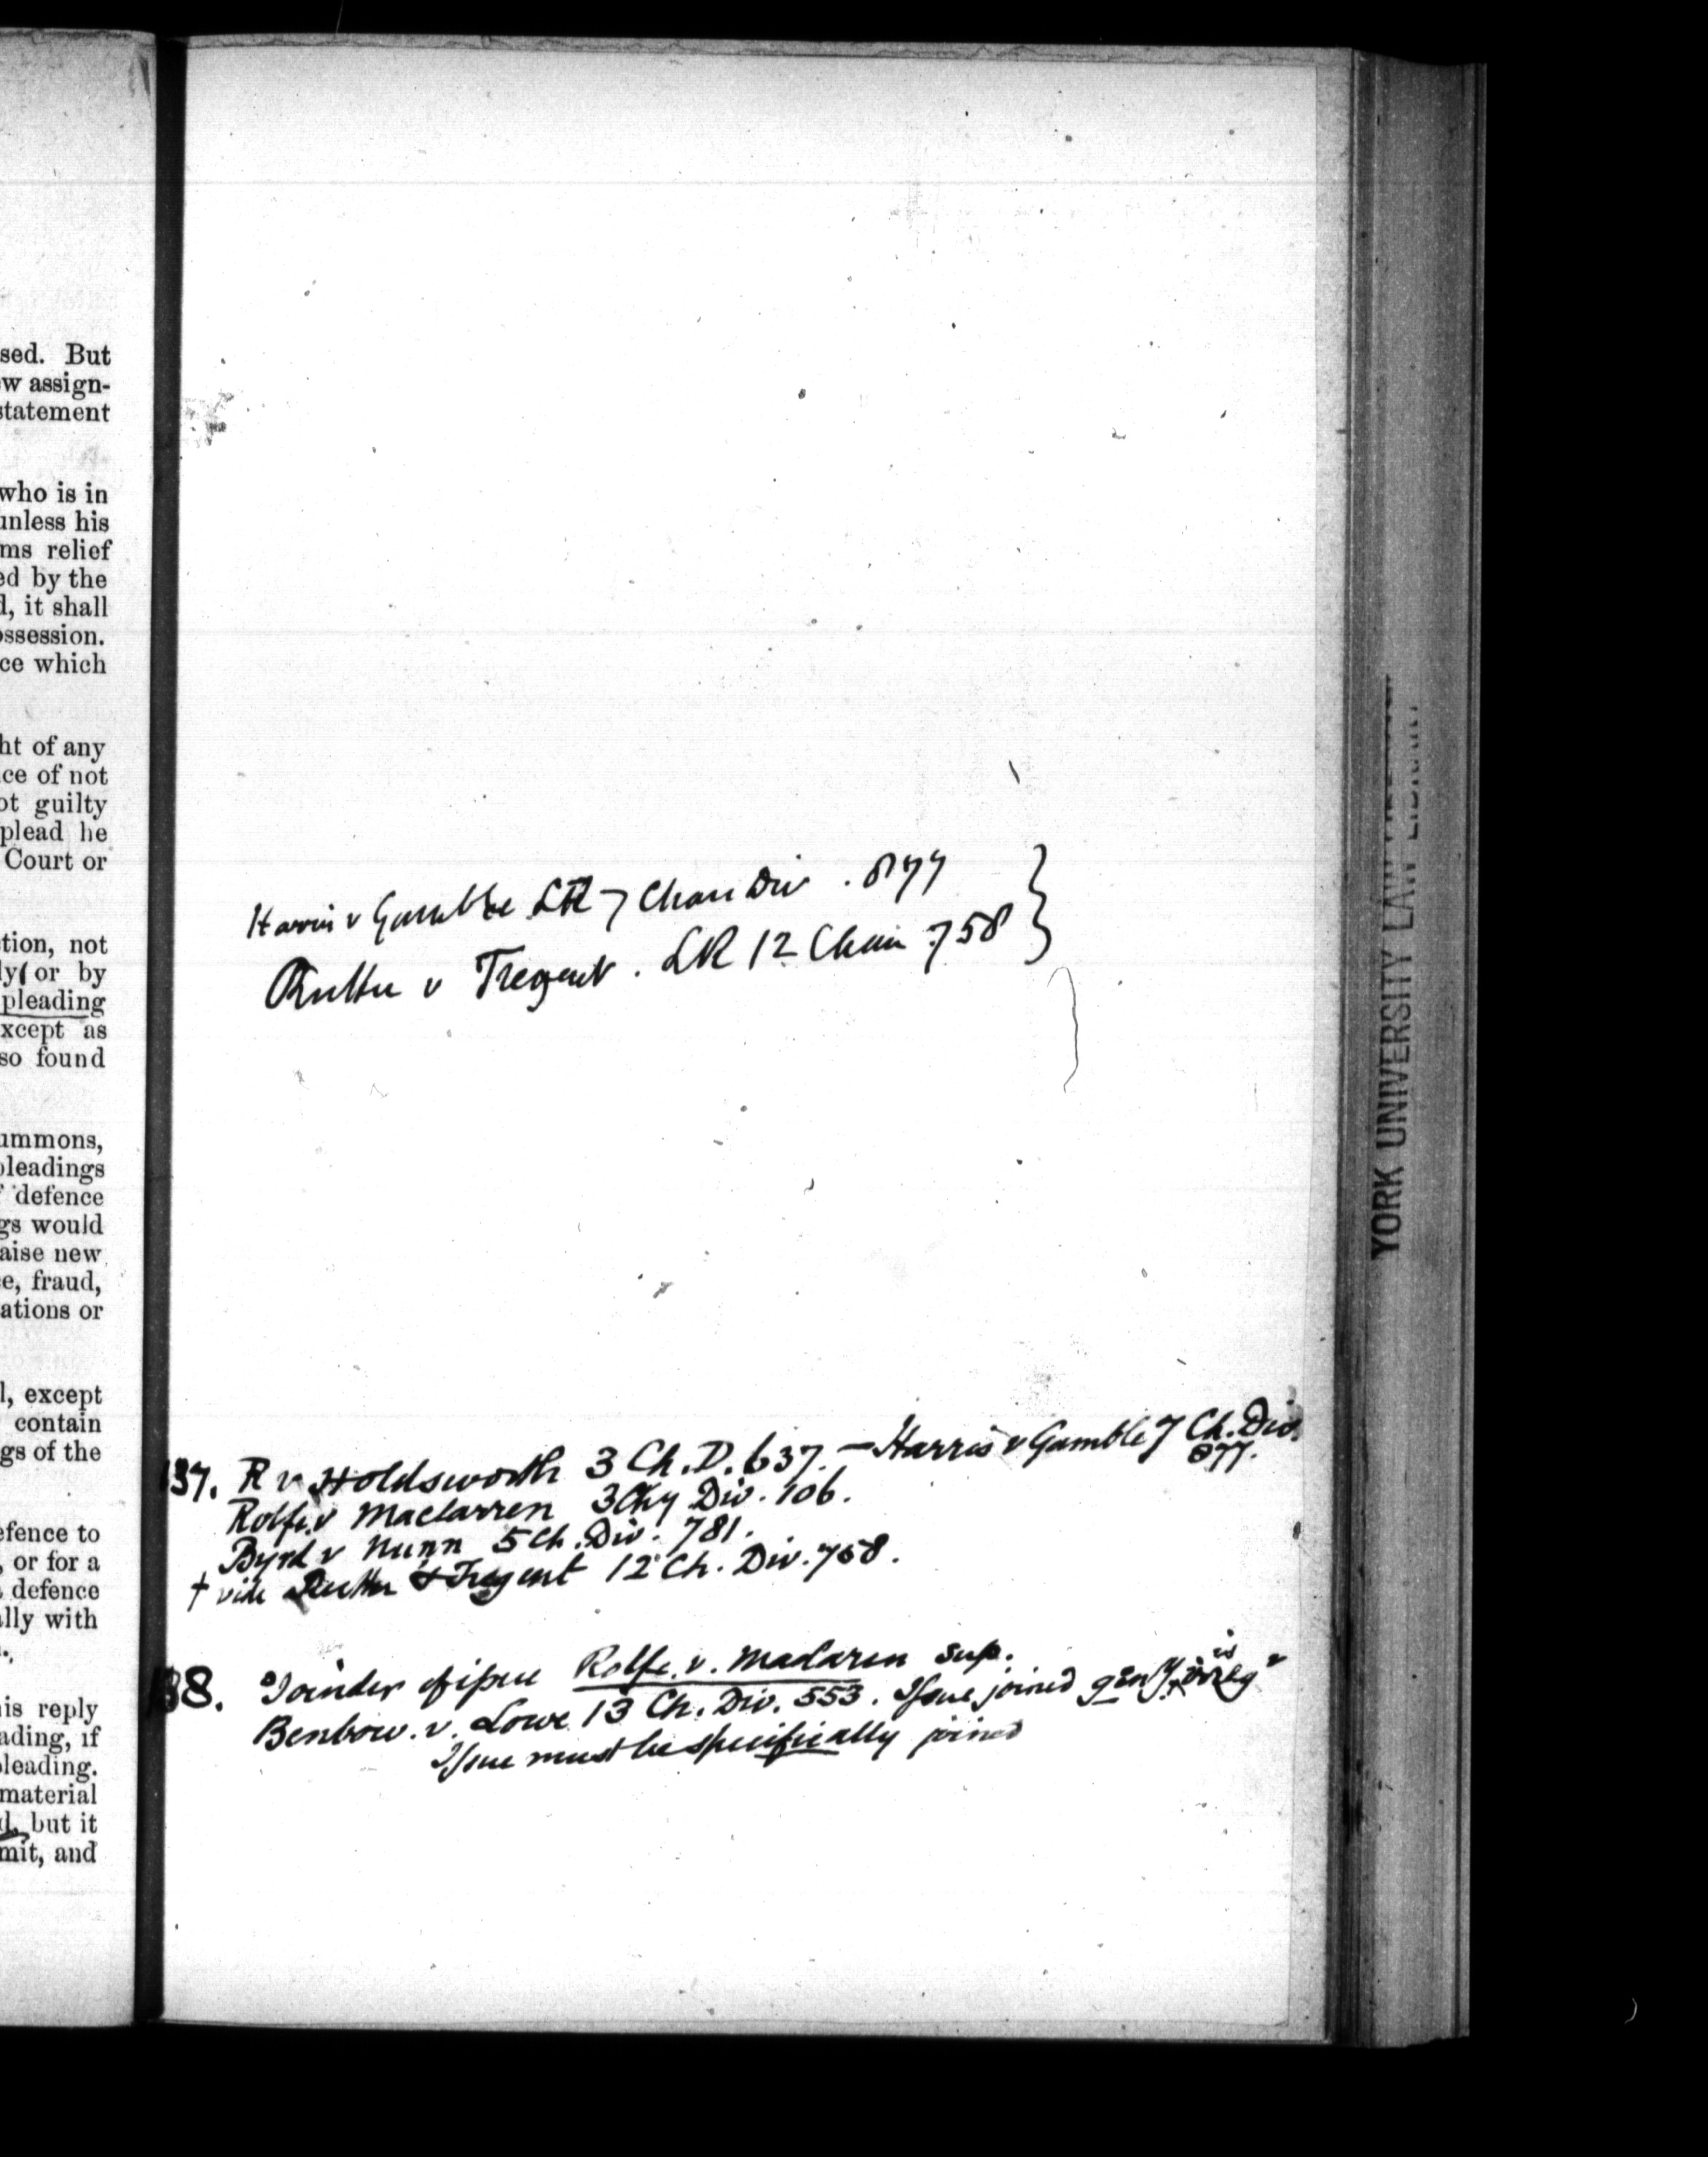 sed. But
w assign-
statement
who is in
unless his
ms relief
ed by the
d, it shall
ossession.
ce which
ht of any
ce of not
ot guilty
plead he
Court or
tion, not
ly or by
pleading
xcept as
so found
ummons,
pleadings
defence
gs would
aise new
e, fraud,
ations or
l, except
contain
gs of the
efence to
, or for a
defence
lly with
is reply
ading, if
pleading.
material
d, but it
mit, and
Harris v Gamble LR 7 Chan Div. 877
Rutter v Tregent. LR 12 Chan 758
137. R v Holdsworth 3 Ch. D. 637. — Harris v Gamble 7 Ch. Div.
877.
Rolfe v Maclarren 3 Chy Div. 106.
Byrd v Nunn 5 Ch. Div. 781.
† vide Rutter v Tregent 12 Ch. Div. 758.
138. Joinder of issue Rolfe. v. Maclaren sup.
Benbow. v. Lowe 13 Ch. Div. 553. Issue joined genly is irreg
Issue must be specifically joined
YORK UNIVERSITY LAW LIBRARY